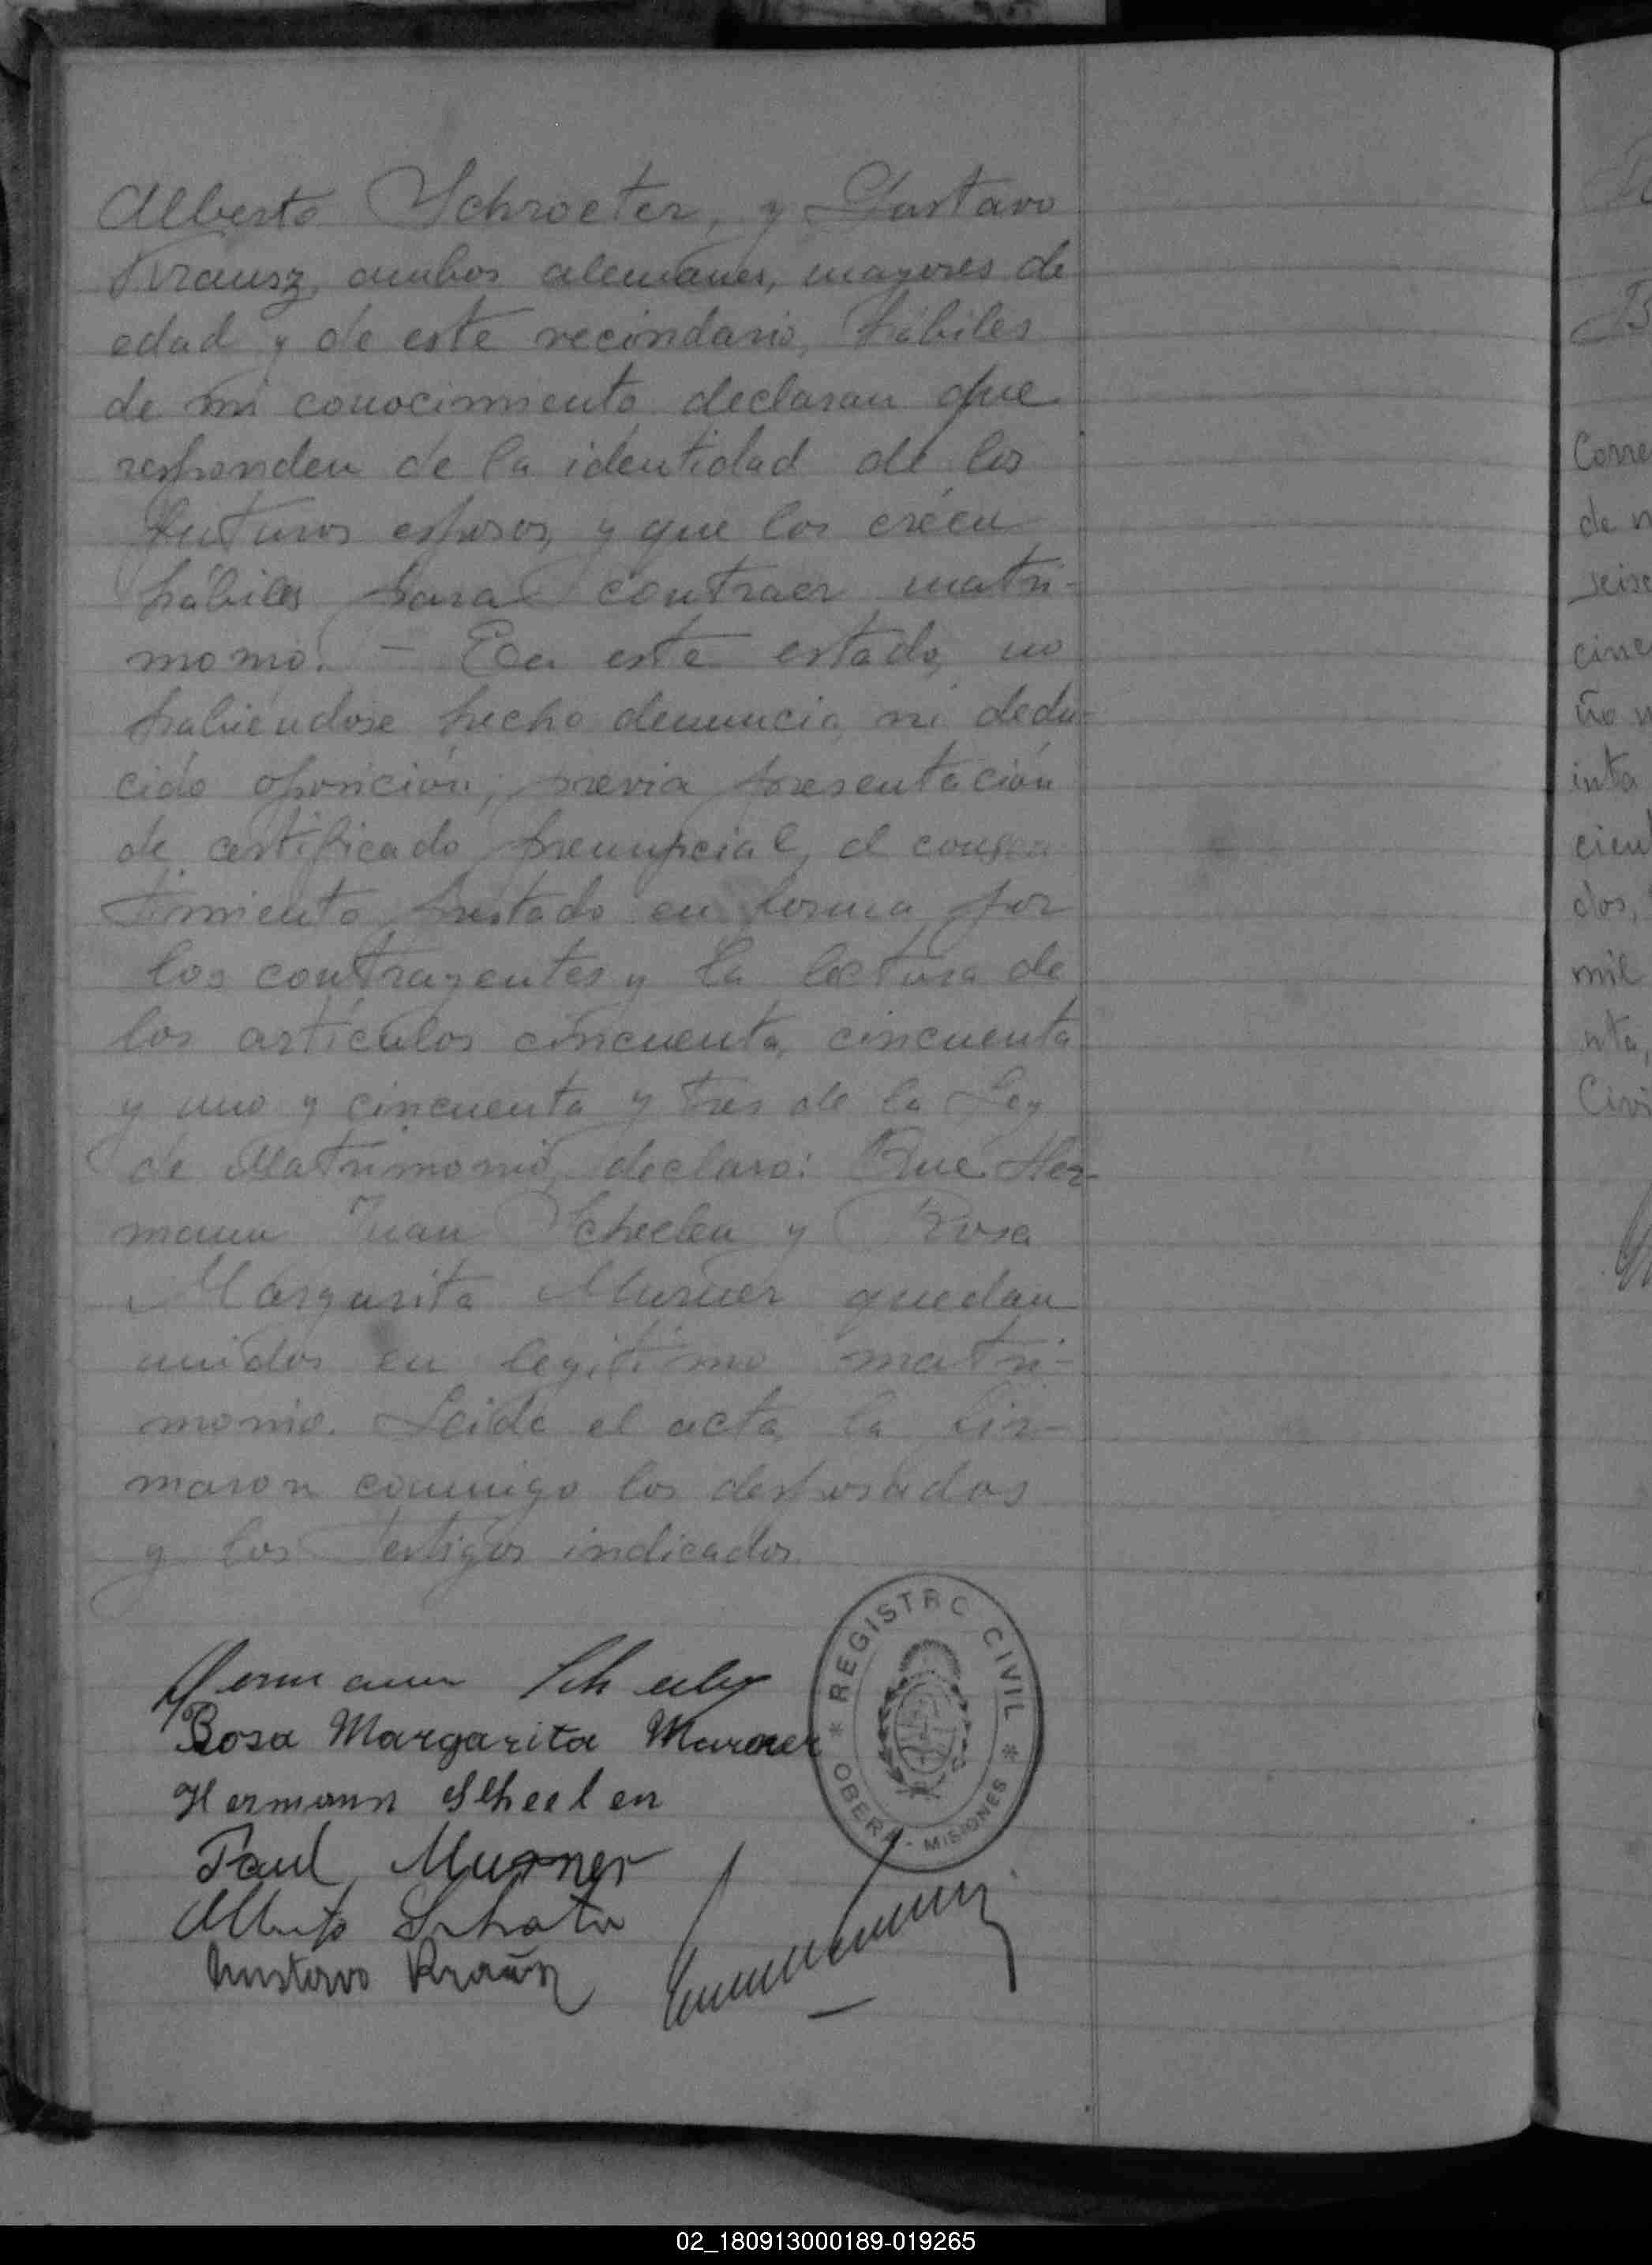 Alberto Schroeter, y Gustavo
Krausz, ambos alemanes, mayores de
edad y de este vecindario, hábiles
de mi conocimiento declaran que
responden de la identidad de los
futuros esposos, y que los créen
hábiles para contraer matri-
monio. - En este estado, no
habiéndose hecho denuncia, ni dedu-
cido oposición, previa presentación
de certificado prenupcial, el consen
timiento prestado en forma por
los contrayentes y la lectura de
los artículos cincuenta, cincuenta
y uno y cincuenta y tres de la Ley
de Matrimonio, declaro: Que Her-
mann Juan Scheelen y Rosa
Margarita Murner quedan
unidos en legítimo matri-
monio. Leida el acta, la fir-
maron conmigo los desposados
y los testigos indicados.
Hermann
Rosa Margarita Murner
Hermann Scheelen
Paul Murner
Alberto
Gustavo
* REGISTRO CIVIL *
OBERA - MISIONES
Corre
de
seis
cinc
ño
inta
cien
dos,
mil
nta,
Civi
02_180913000189-019265